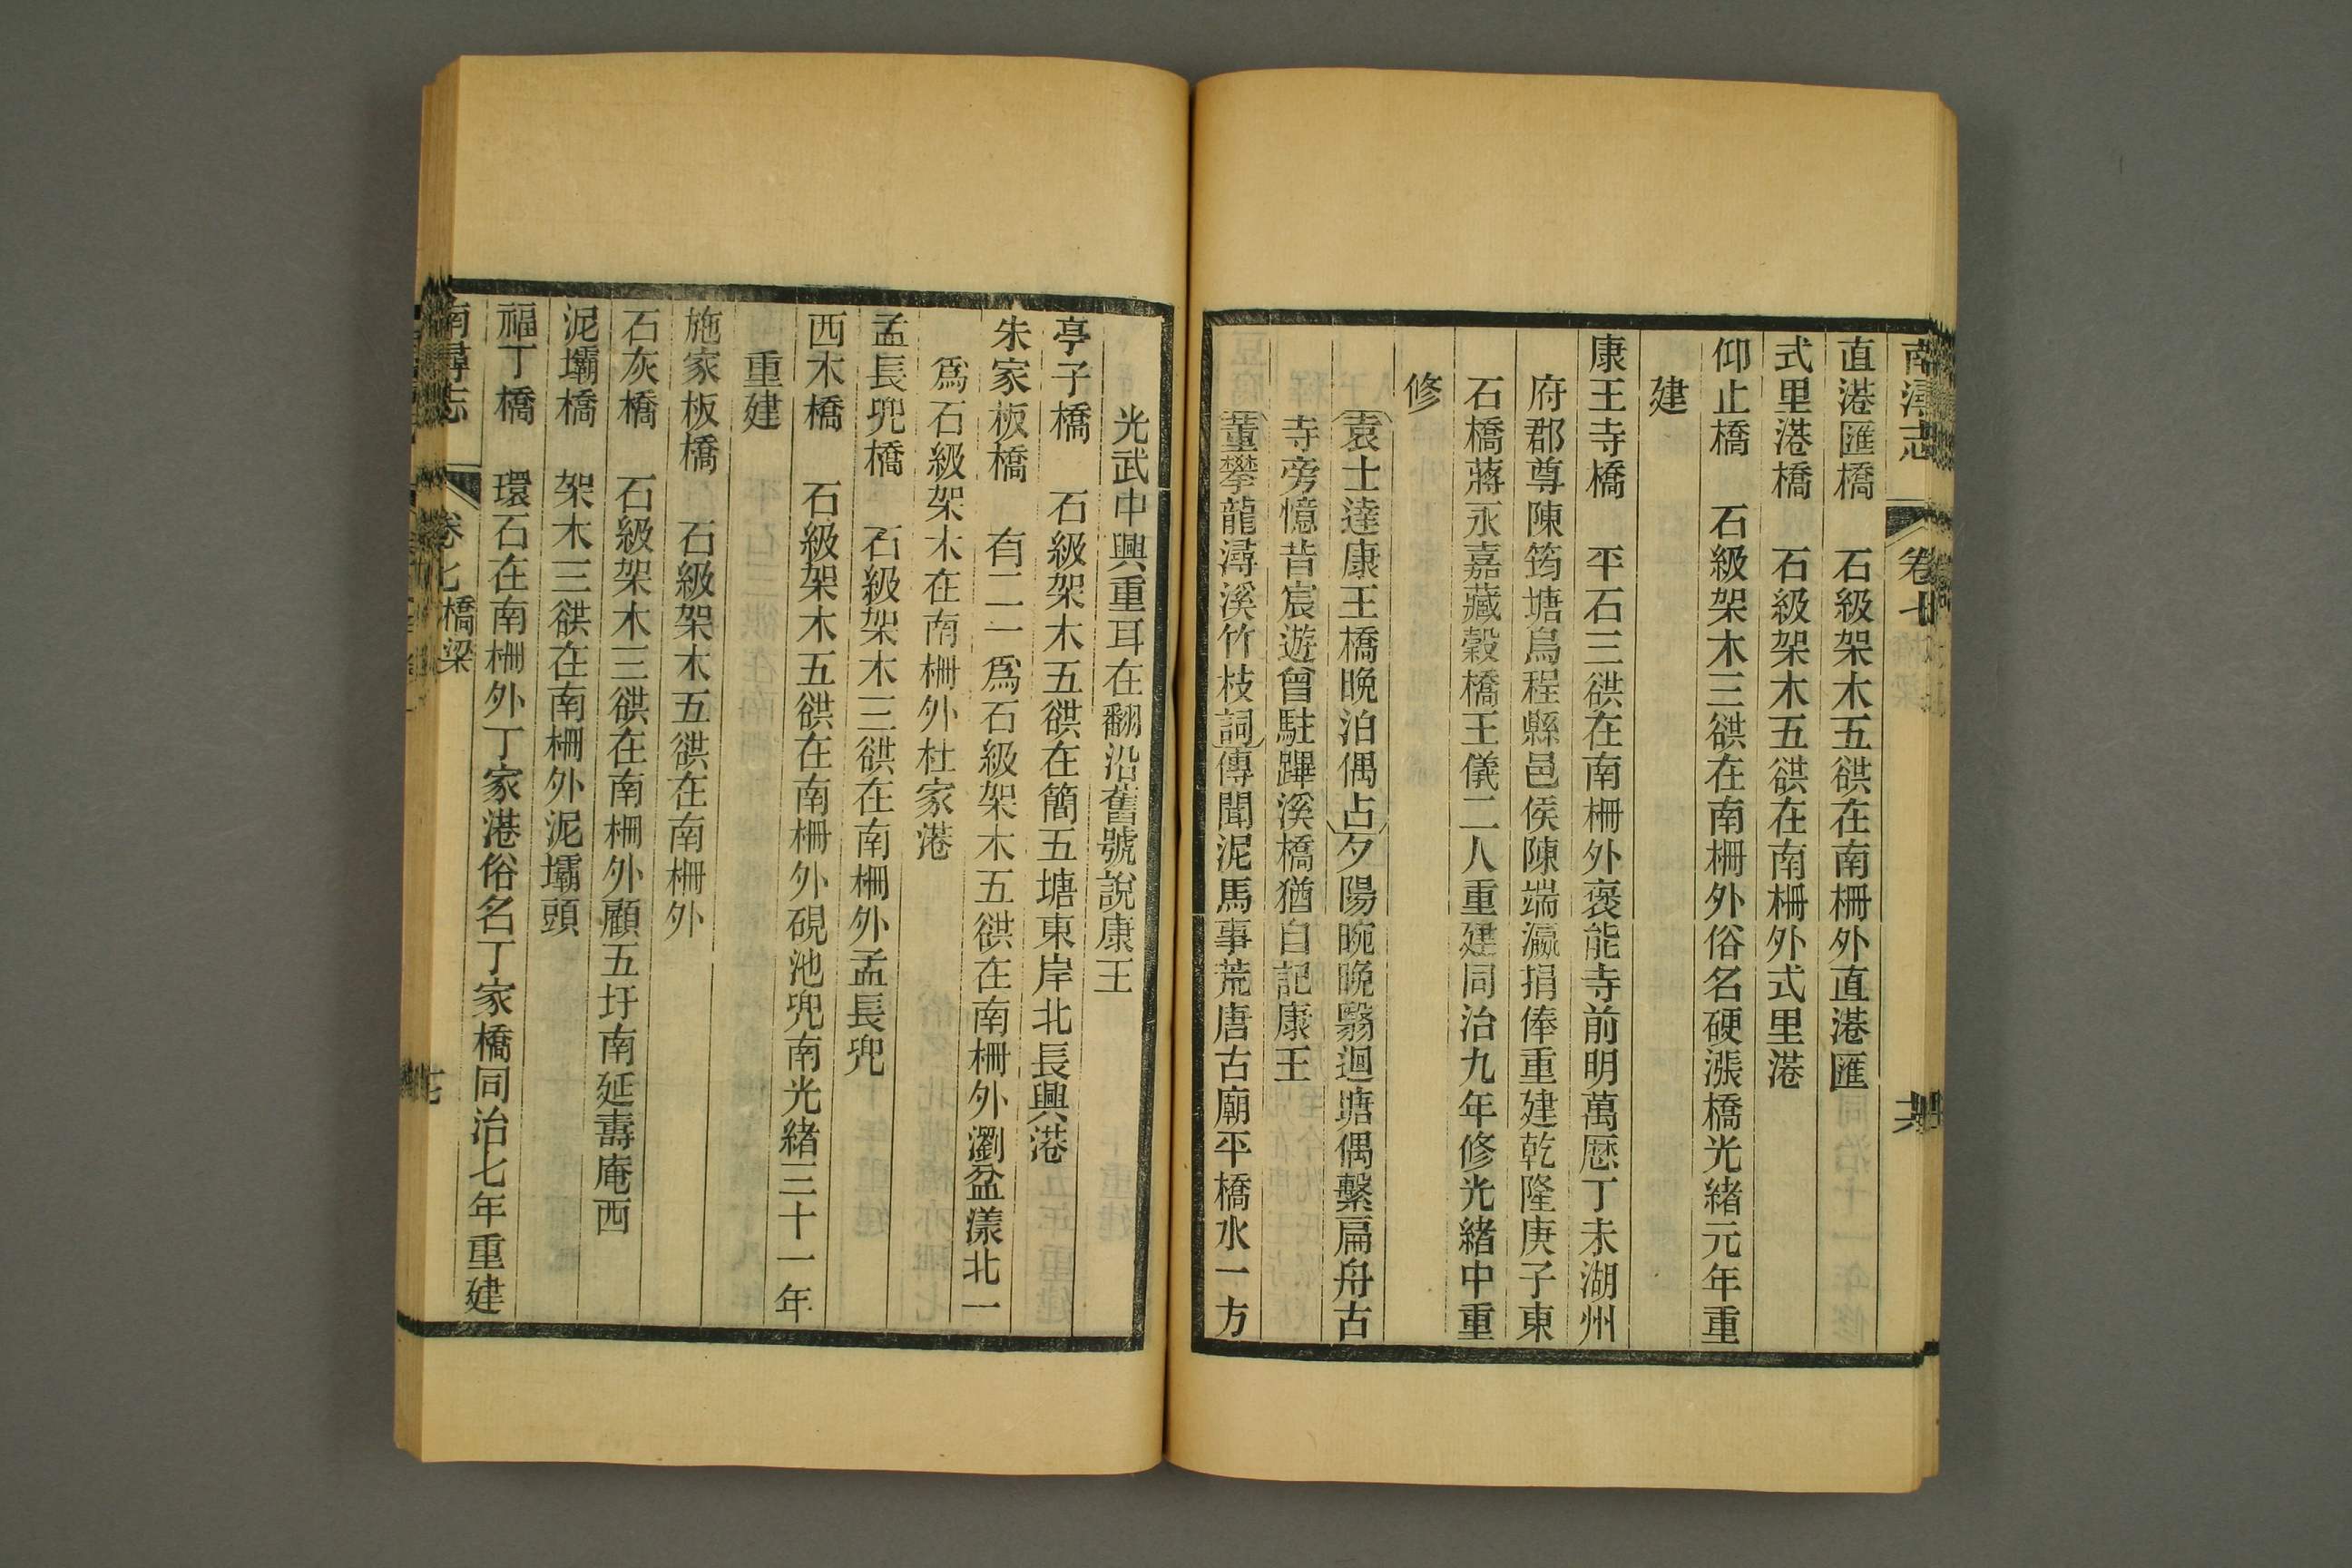 南潯志
卷七
直港匯橋　石級架木五𧯛在南柵外直港匯
式里港橋　石級架木五𧯛在南柵外式里港
仰止橋　石級架木三𧯛在南柵外俗名硬漲橋光緒元年重
建
康王寺橋　平石三𧯛在南柵外褒能寺前明萬歷丁未湖州
府郡尊陳筠塘烏程縣邑侯陳端瀛捐俸重建乾隆庚子東
石橋蔣永嘉藏穀橋王儀二人重建同治九年修光緒中重
修
袁士達康王橋晚泊偶占夕陽晼晚翳迴塘偶繫扁舟古
寺旁憶昔宸遊曾駐蹕溪橋猶自記康王
董攀龍潯溪竹枝詞傳聞泥馬事荒唐古廟平橋水一方
光武中興重耳在翻沿舊號說康王
亭子橋　石級架木五𧯛在簡五塘東岸北長興港
朱家板橋　有二一爲石級架木五𧯛在南柵外瀏盆漾北一
爲石級架木在南柵外杜家港
孟長兜橋　石級架木三𧯛在南柵外孟長兜
西木橋　石級架木五𧯛在南柵外硯池兜南光緒三十一年
重建
施家板橋　石級架木五𧯛在南柵外
石灰橋　石級架木三𧯛在南柵外顧五圩南延壽庵西
泥壩橋　架木三𧯛在南柵外泥壩頭
福丁橋　環石在南柵外丁家港俗名丁家橋同治七年重建
南潯志
卷七 橋梁